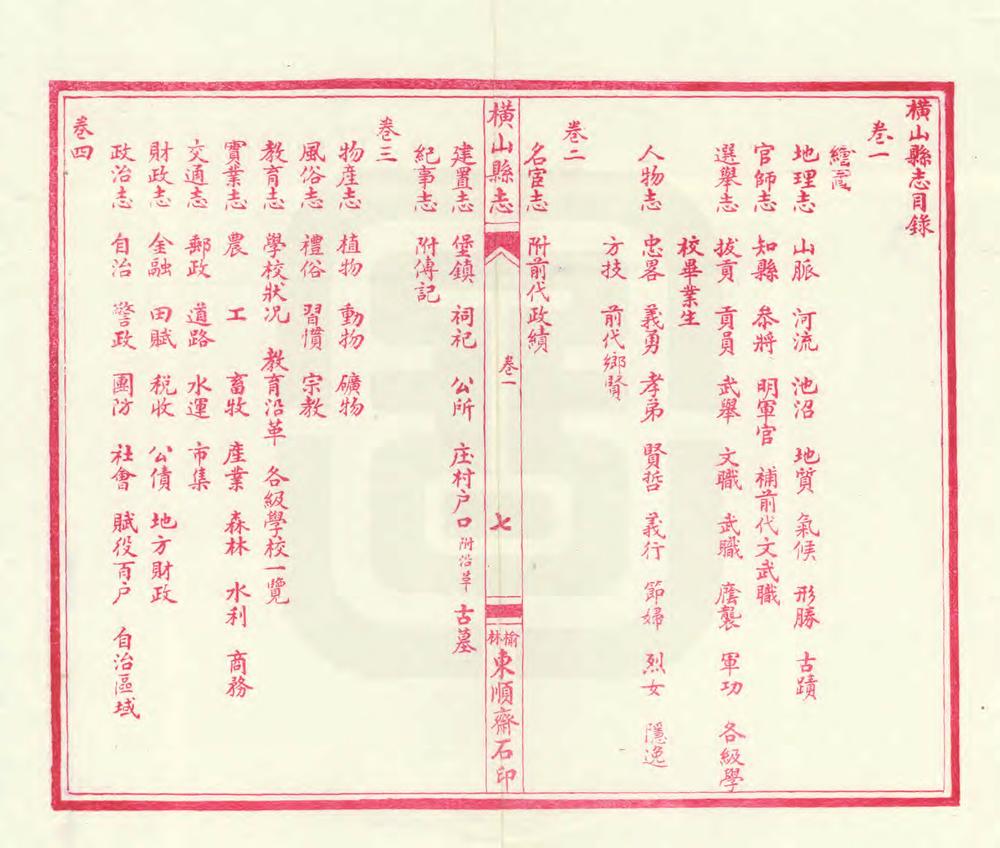 橫山縣志目錄
卷一
繪圖
地理志 山脈 河流 池沼 地質 氣候 形勝 古蹟
官師志 知縣 叅將 明軍官 補前代文武職
選舉志 拔貢 貢員 武舉 文職 武職 廕襲 軍功 各級學
校畢業生
人物志 忠畧 義勇 孝弟 賢哲 義行 節婦 烈女 隱逸
方技 前代鄉賢
卷二
名宦志 附前代政績
橫山縣志 卷一 七 榆林東順齋石印
建置志 堡鎮 祠祀 公所 庄村户口 附沿革 古墓
紀事志 附傳記
卷三
物産志 植物 動物 礦物
風俗志 禮俗 習慣 宗教
教育志 學校狀况 教育沿革 各級學校一覽
實業志 農 工 畜牧 産業 森林 水利 商務
交通志 郵政 道路 水運 市集
財政志 金融 田賦 税收 公債 地方財政
政治志 自治 警政 團防 社會 賦役百户 自治區域
卷四